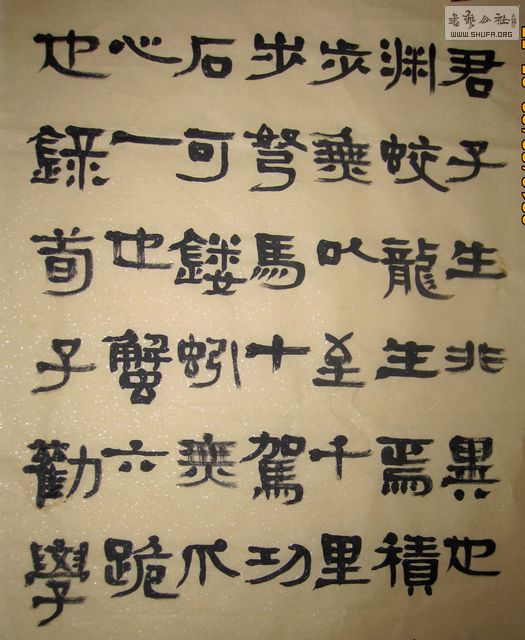 君子生非異也
渊蛟龍生焉積
步無以至千里
步弩馬十駕功
石可鏤蚓無爪
心一也蟹六跪
也錄荀子勸學
书艺公社
WWW.SHUFA.ORG